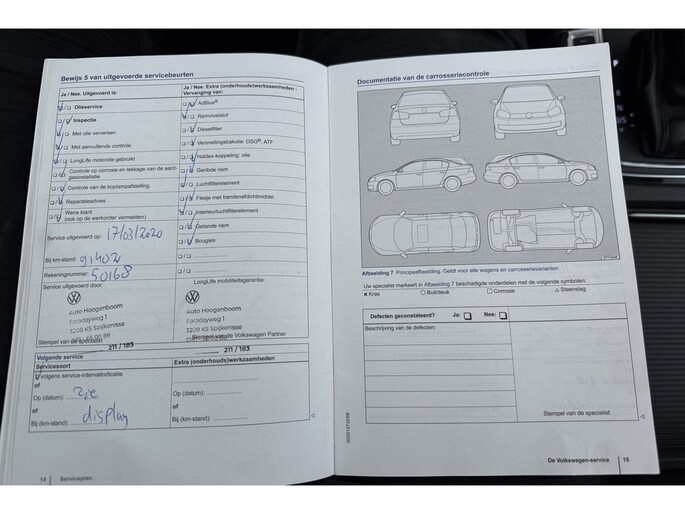 Bewijs 5 van uitgevoerde servicebeurten
Ja / Nee. Uitgevoerd is:
Olieservice
Inspectie
Met olie verversen
Met aanvullende controle
LongLife motorolie gebruikt
Controle op corrosie en lekkage van de aardgasinstallatie
Controle van de koplampafstelling
Reparatieadvies
Wens klant
(ook op de werkorder vermelden)
Service uitgevoerd op: 17/03/2020
Bij km-stand: 91402
Rekeningnummer: 50168
Service uitgevoerd door:
Auto Hoogenboom
Faradayweg 1
3208 KS Spijkenisse
Stempel van de specialist
211 / 183
Ja / Nee. Extra (onderhouds)werkzaamheden -
Vervanging van:
AdBlue®
Remvloeistof
Dieselfilter
Versnellingsbakolie: DSG®, ATF
Haldex-koppeling: olie
Geribde riem
Luchtfilterelement
Flesje met bandenafdichtmiddel
Interieurluchtfilterelement
Getande riem
Bougies
LongLife mobiliteitsgarantie:
Auto Hoogenboom
Faradayweg 1
3208 KS Spijkenisse
Stempel van de Volkswagen Partner
211 / 183
Volgende service
Servicesoort
Extra (onderhouds)werkzaamheden
volgens service-intervalindicatie
of
Op (datum): zie
of
Bij (km-stand): display
Op (datum):
of
Bij (km-stand):
14 Serviceplan
Documentatie van de carrosseriecontrole
Afbeelding 7 Principeafbeelding. Geldt voor alle wagens en carrosserievarianten
Uw specialist markeert in Afbeelding 7 beschadigde onderdelen met de volgende symbolen:
× Kras ○ Buil/deuk □ Corrosie △ Steenslag
Defecten geconstateerd? Ja: Nee:
Beschrijving van de defecten:
Stempel van de specialist
De Volkswagen-service 15